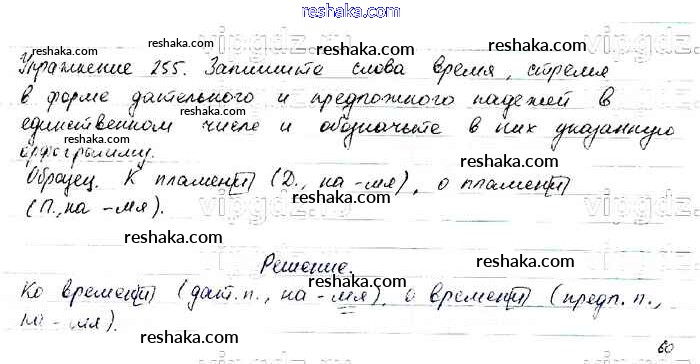 reshaka.com
Упражнение 255. Запишите слова время, стремя
в форме дательного и предложного падежей в
единственном числе и обозначьте в них указанную
орфограмму.
Образец. К пламени (Д., на -мя), о пламени
(П., на -мя).
Решение.
Ко времени (дат.п., на -мя), о времени (предл. п.,
на -мя).
60
reshaka.com
reshaka.com
reshaka.com
reshaka.com
reshaka.com
reshaka.com
reshaka.com
reshaka.com
reshaka.com
reshaka.com
reshaka.com
reshaka.com